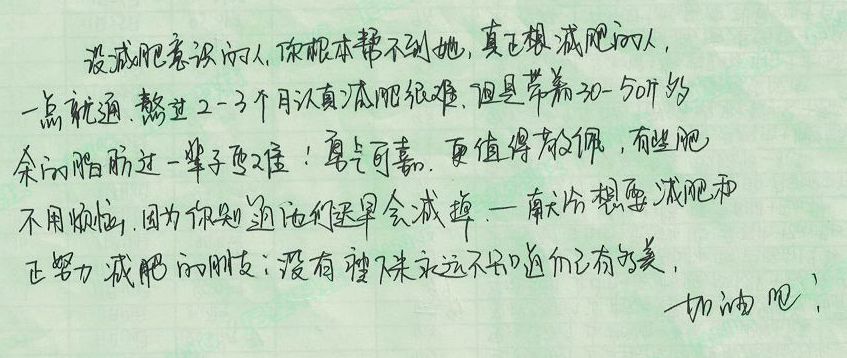 没减肥意识的人,你根本帮不到她,真正想减肥的人,
一点就通、熬过2-3个月认真减肥很难,但是带着30-50斤多
余的脂肪过一辈子更难!勇气可嘉、更值得敬佩,有些肥
不用烦恼,因为你知道它们迟早会减掉、一献给想要减肥和
正努力减肥的朋友:没有瘦下来永远不知道自己有多美,
加油吧!